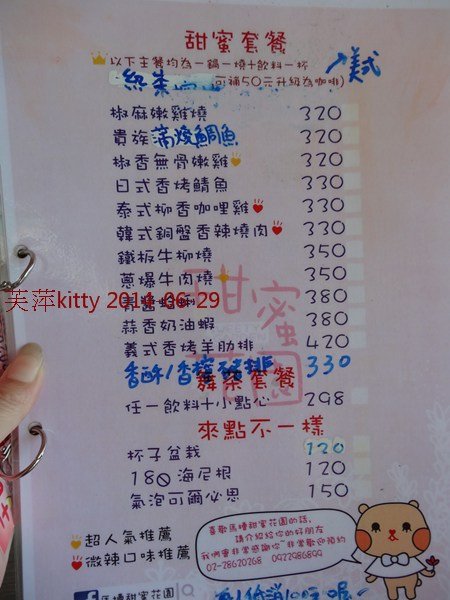 甜蜜套餐
以下主餐均為一鍋一燒+飲料一杯
美式
可補50元升級為咖啡)
椒麻嫩雞燒 320
貴族蒲燒鯛魚 320
椒香無骨嫩雞 320
日式香烤鯖魚 330
泰式椰香咖哩雞 330
韓式銅盤香辣燒肉 330
鐵板牛柳燒 350
蔥爆牛肉燒 350
380
蒜香奶油蝦 380
義式香烤羊肋排 420
香酥/香檸豬排 330
套餐
任一飲料+小點心 298
來點不一樣
杯子盆栽 120
180海尼根 120
氣泡可爾必思 150
超人氣推薦
微辣口味推薦
喜歡馬槽甜蜜花園的話,
請介紹給你的好朋友
我們會非常感謝你~非常歡迎預約
02-28620268 0922986899
f 馬槽甜蜜花園
甜蜜花園
芙萍kitty 2014 06 29